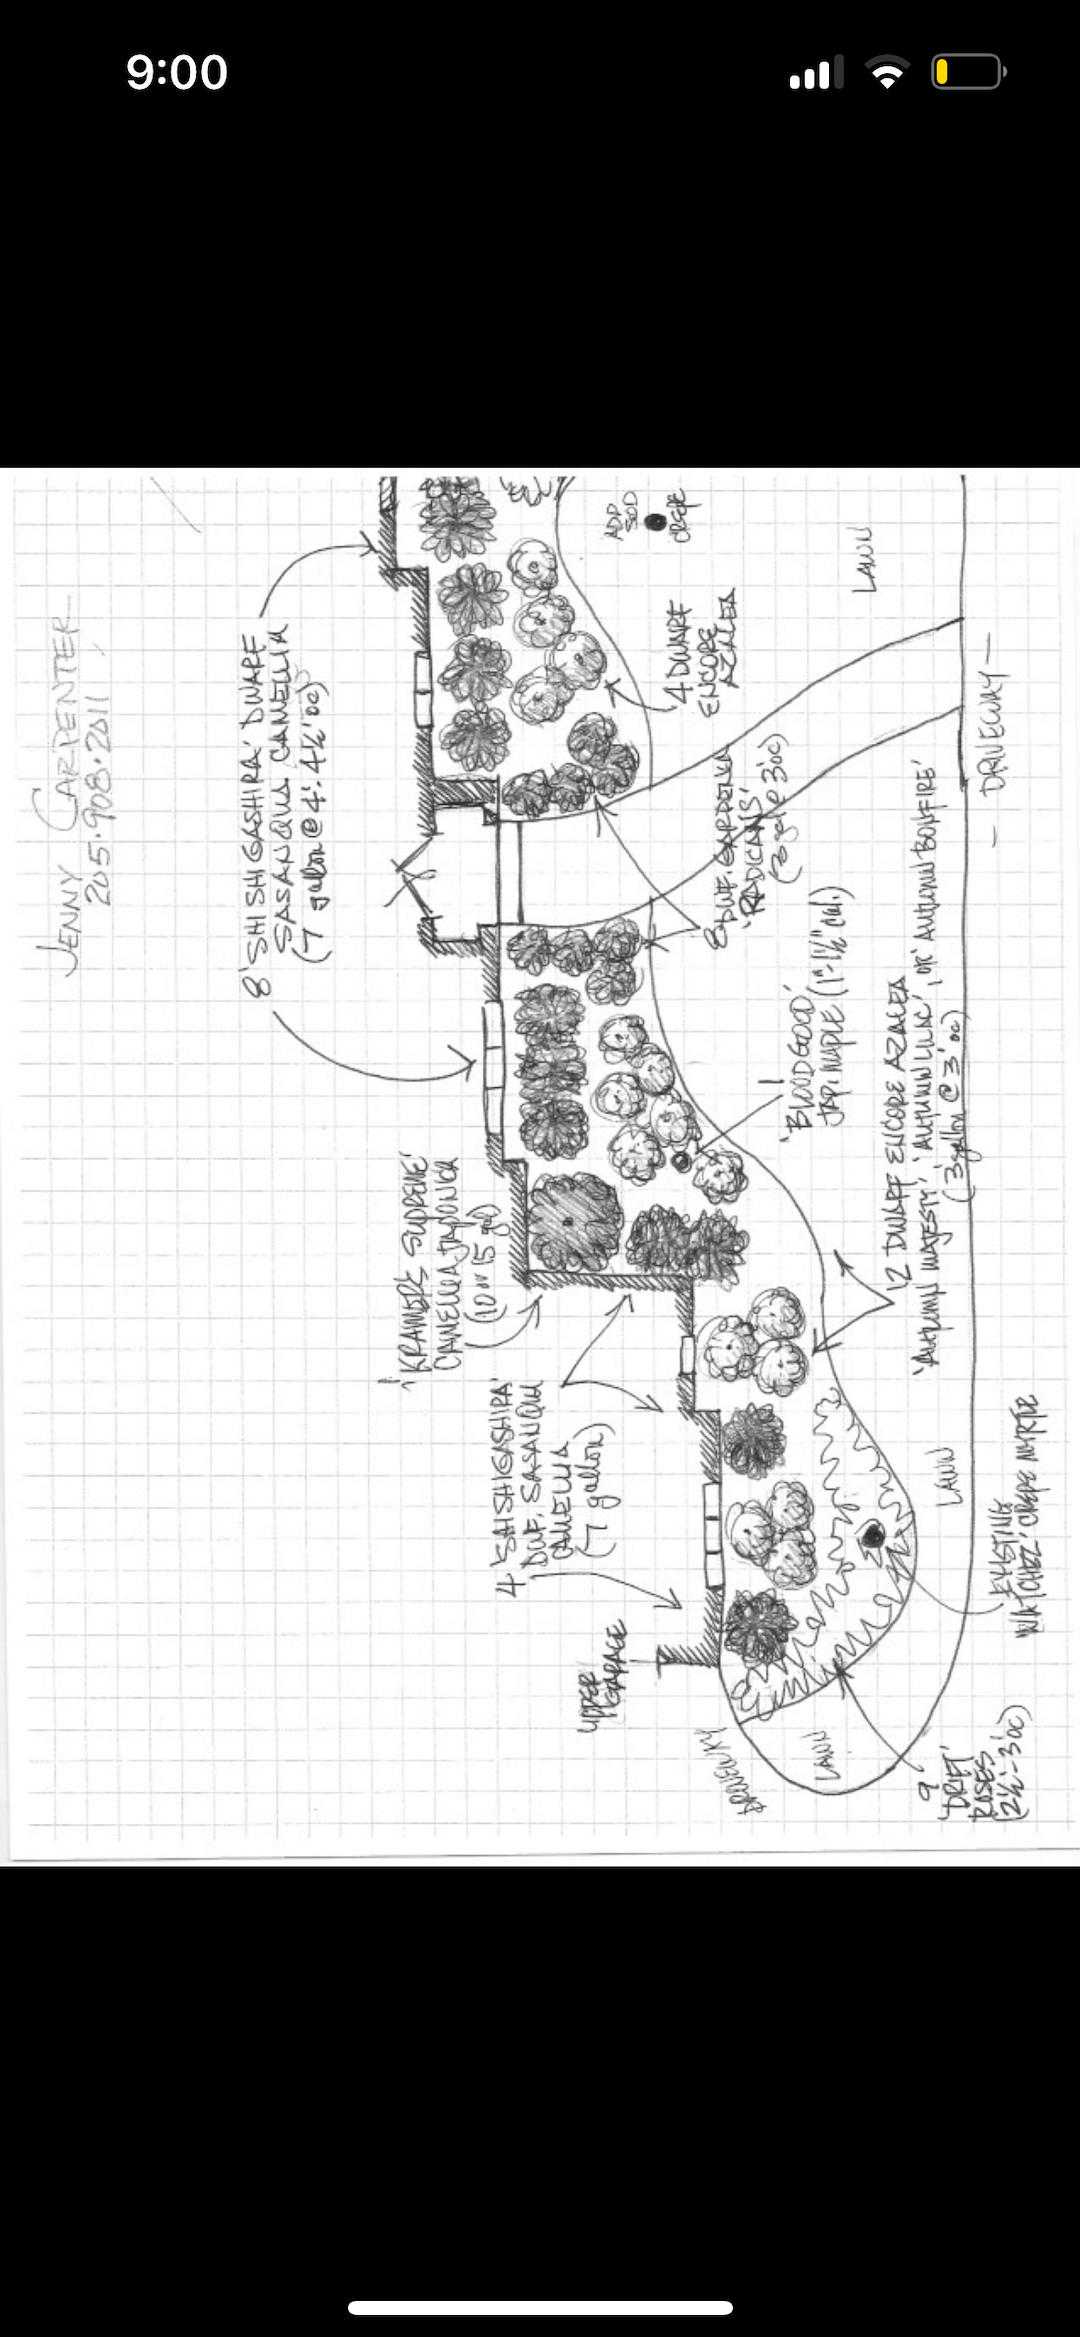 9:00
JENNY CARPENTER
205.908.2011
8 'SHISHI GASHIRA' DWARF
SASANQUA CAMELLIA
(7 gallon @ 4'-4½' oc)
ADD
SOD
CREPE
LAWN
4 DWARF
ENCORE
AZALEA
- DRIVEWAY -
8 DWF. GARDENIA
'RADICANS'
(3 gal @ 3' oc)
1
'BLOODGOOD'
JAP. MAPLE (1"-1½" cal.)
12 DWARF ENCORE AZALEA
'AUTUMN MAJESTY', 'AUTUMN LILAC', OR 'AUTUMN BONFIRE'
(3 gallon @ 3' oc)
1 'KRAMER'S SUPREME'
CAMELLIA JAPONICA
(10 or 15 gal)
4 'SHISHIGASHIRA'
DWF. SASANQUA
CAMELLIA
(7 gallon)
UPPER
GARAGE
DRIVEWAY
LAWN
LAWN
EXISTING
'NATCHEZ' CREPE MYRTLE
9
'DRIFT'
ROSES
(2½'-3' oc)